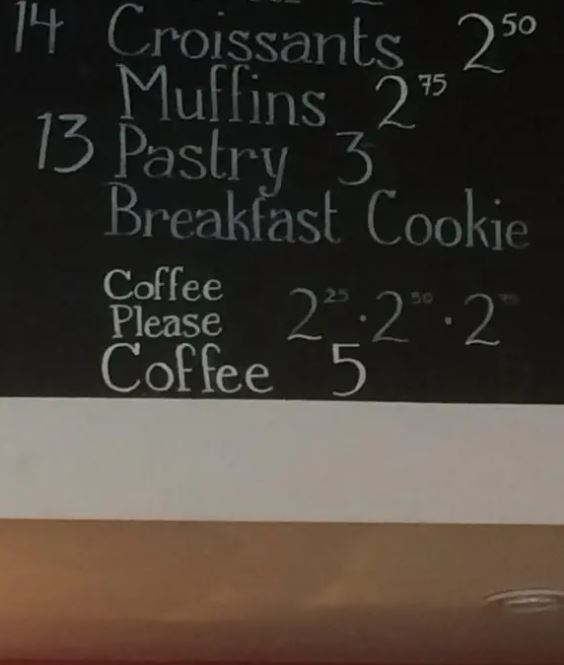 14 Croissants 2 50
Muffins 2 75
13 Pastry 3
Breakfast Cookie
Coffee
Please 2 25 · 2 50 · 2
Coffee 5